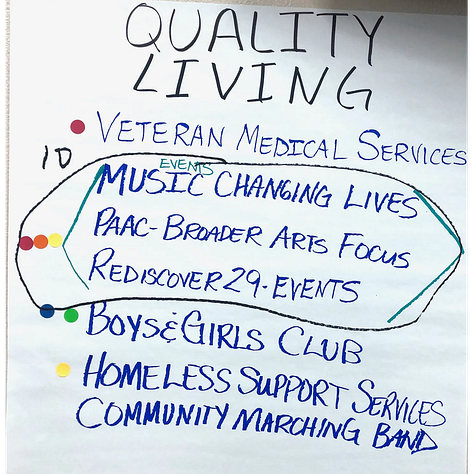 QUALITY
LIVING
VETERAN MEDICAL SERVICES
10
EVENTS
MUSIC CHANGING LIVES
PAAC- BROADER ARTS FOCUS
REDISCOVER 29 - EVENTS
BOYS & GIRLS CLUB
HOMELESS SUPPORT SERVICES
COMMUNITY MARCHING BAND